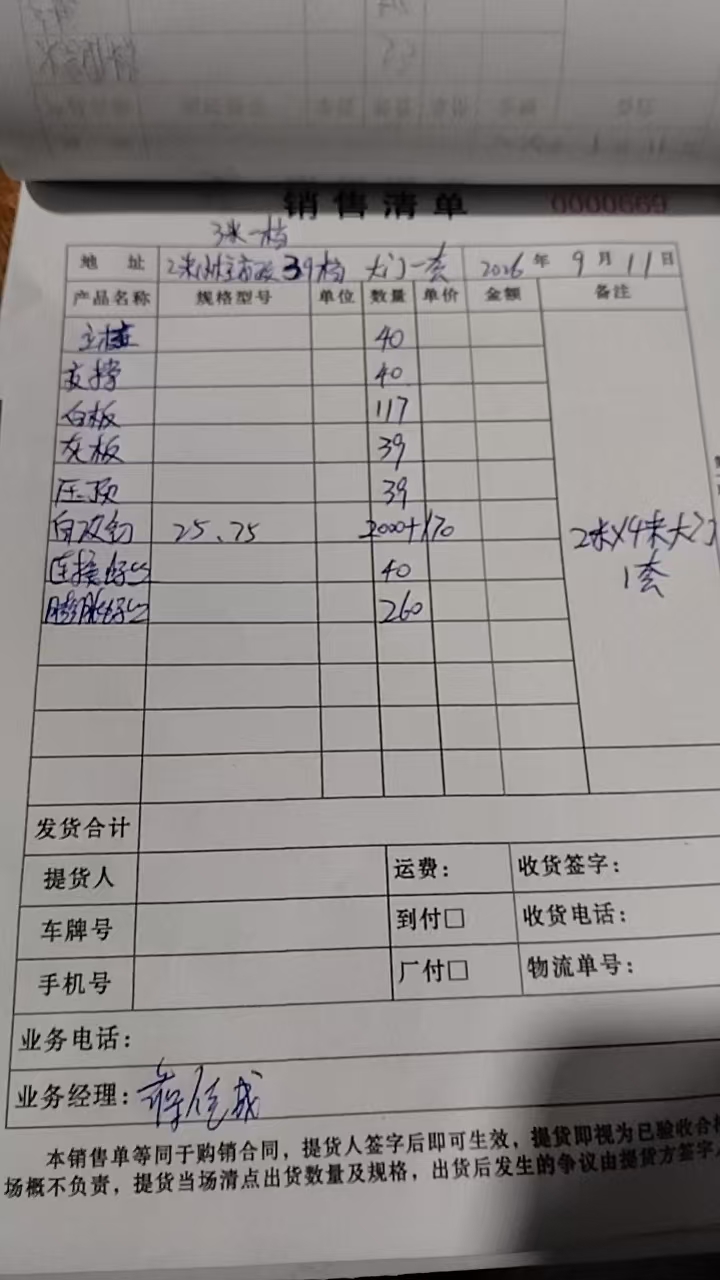 销售清单 0000669
3米一档
地 址 2米 39档 大门一套 2026年9月11日
产品名称 规格型号 单位 数量 单价 金额 备注
主柱 40
支撑 40
白板 117
灰板 39
压顶 39
自攻钉 25、75 2000+170
2米×4米大门
1套
连接 40
膨胀 260
发货合计
提货人 运费: 收货签字:
车牌号 到付□ 收货电话:
手机号 厂付□ 物流单号:
业务电话:
业务经理:
本销售单等同于购销合同，提货人签字后即可生效，提货即视为已验收合格
场概不负责，提货当场清点出货数量及规格，出货后发生的争议由提货方签字